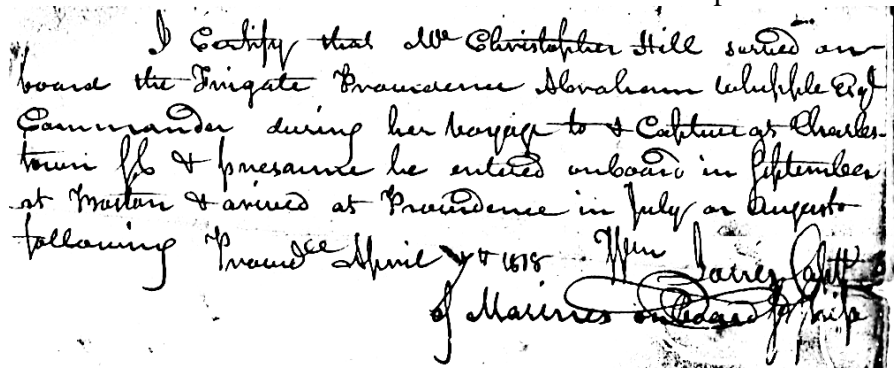 I Certify that Mr Christopher Hill served on
board the Frigate Providence Abraham Whipple Esqr
Commander during her voyage to & Capture at Charles-
town SC & presume he entered onboard in September
at Boston & arived at Providence in July or August
following Providce April 1818 Wm Jones Captn
of Marines onboard sd Ship